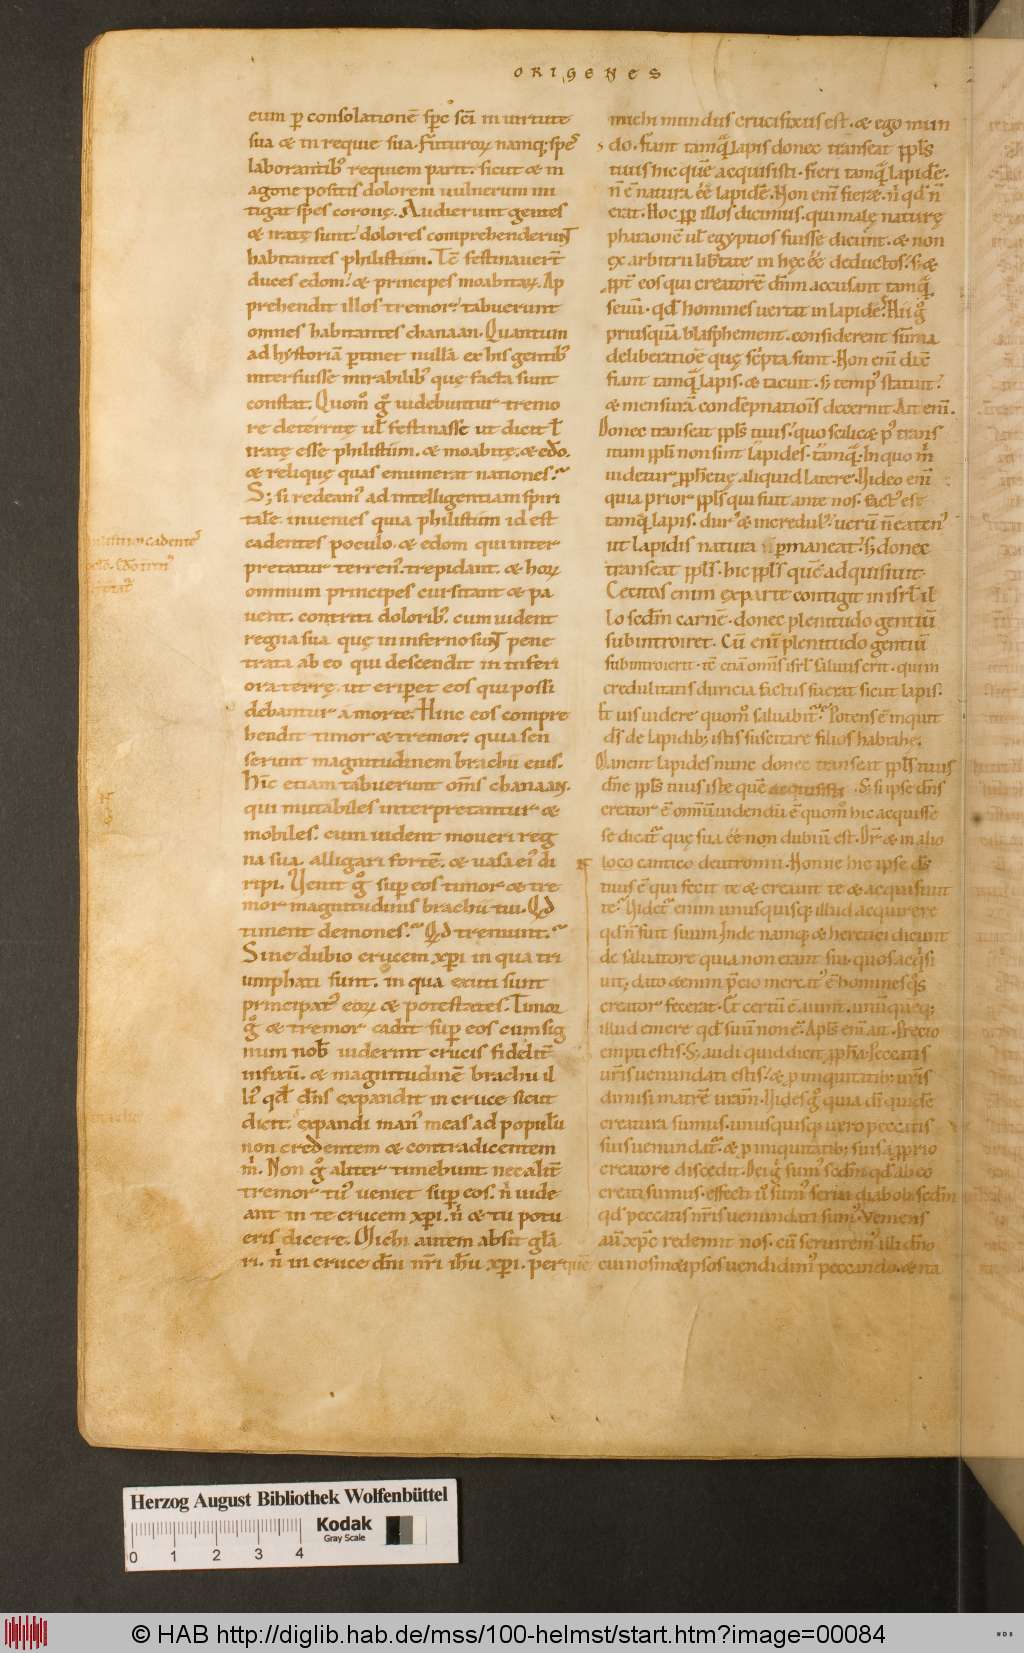 ORIGENES
eum p̄ consolationē sp̄c sc̄i in uirtute
sua & in requie sua. Futuroꝝ namq; spes
laborantibꝰ requiem parit. sicut & in
agone positis dolorem uulnerum mi
tigat spes coronę. Audierunt gentes
& iratę sunt. dolores comprehenderunt
habitantes philistim. Tc̄ festinauert̄
duces edom. & principes moabitaꝝ. Ap
prehendit illos tremor. tabuerunt
omnes habitantes chanaan. Quantum
ad hystoriā ꝑtinet nullā ex his gentibꝰ
interfuisse mirabilibꝰ quę facta sunt
constat. Quom̊ g̊ uidebuntur tremo
re deterritę ul̄ festinasse ut dicit ł
iratę esse philistim. & moabitę. & edō.
& relique quas enumerat nationes.
S; si redeamꝰ ad intelligentiam spiri
talē. inuenies quia philistim id est
cadentes poculo. & edom qui inter
pretatur terrenꝰ. trepidant. & hoꝝ
omnium principes cursitant & pa
uent. contriti doloribꝰ. cum uident
regna sua quę in inferno sunt pene
trata ab eo qui descendit in inferi
ora terrę. ut eriperet eos qui possi
debantur a morte. Hinc eos compre
hendit timor & tremor. quia sen
serunt magnitudinem brachii eius.
Hinc etiam tabuerunt om̄s chanaan.
qui mutabiles interpretantur &
mobiles. cum uident moueri reg
na sua. alligari fortē. & uasa eiꝰ di
ripi. Uenit g̊ sup̄ eos timor & tre
mor magnitudinis brachii tui. Qd
timent demones. Qd tremunt.
Sine dubio crucem xp̄i in qua tri
umphati sunt. in qua exuti sunt
principatꝰ eoꝝ & potestates. Timor
g̊ & tremor cadit sup̄ eos cum sig
num nob̄ uiderint crucis fidelit̄
infixū. & magnitudinē brachii il
liꝰ qd̄ dn̄s expandit in cruce sicut
dicit. expandi manꝰ meas ad populū
non credentem & contradicentem
m̄. Non g̊ aliter timebunt nec alit̄
tremor tuꝰ ueniet sup̄ eos. ni uide
ant in te crucem xp̄i. ni & tu potu
eris dicere. Michi autem absit glā
ri. ni in cruce dn̄i nr̄i ih̄u xp̄i. per quē
michi mundus crucifixus est. & ego mun
do. Fiant tamq̄ lapis donec transeat ppl̄s
tuus hic quē acquisisti. fieri tamq̄ lapidē.
n̄ ē natura eē lapidē. Non enī fieret. ni qd̄ n̄
erat. Hoc pp̄ illos dicimus. qui malę naturę
pharaonē ul̄ egyptios fuisse dicunt. & non
ex arbitrii libtate in hęc eē deductos. s; &
ppt̄ eos qui creatorē dn̄m accusant tamq̄
seuū. qd̄ homines uertat in lapidēs. Hii g̊
priusquā blasphement. considerent sūma
deliberatiōe quę sc̄pta sunt. Non enī dixit
fiant tamq̄ lapis. & tacuit. s; tempꝰ statuit.
& mensurā condēpnationis decernit. Ait enī.
Donec transeat ppl̄s tuus. quo scilicet pꝰ trans
itum ppl̄i non sint lapides. tamq̄. In quo m̄
uidetur pphetię aliquid latere. Uideo enī
quia prior ppl̄s qui fuit ante nos. factꝰ est
tamq̄ lapis. durꝰ & incredulꝰ. uerū n̄ eatenꝰ
ut lapidis natura ꝑmaneat. s; donec
transeat ppl̄s. hic ppl̄s quē adquisiuit.
Cecitas enim ex parte contigit in isrl̄ il
lo sedm̄ carnē. donec plenitudo gentiū
subintroiret. Cū enī plenitudo gentiū
subintroierit. tc̄ etiā om̄is isrl̄ saluus erit. qui in
credulitatis duricia factus fuerat sicut lapis.
Et uis uidere quom̊ saluabit̄. Potens ē inquit
ds̄ de lapidibꝰ istis suscitare filios habrahę.
Manent lapides nunc donec transeat ppl̄s tuus
dn̄e ppl̄s tuus iste quē acquisisti. S; si ipse dn̄s
creator ē omniū uidendū ē quom̊ hic acquisisse
se dicat̄ quę sua eē non dubiū est. Dr̄ & in alio
loco cantico deutromii. Nonne hic ipse ds̄
tuus ē qui fecit te & creauit te & acquisiuit
te. Uidet̄ enim unusquisq; illud acquirere
qd̄ n̄ fuit suum. Inde namq; & heretici dicunt
de saluatore quia non erant sui quos acq̄si
uit. dato etenim pretio mercatꝰ ē homines q̄s
creator fecerat. Et certū ē aiunt. unūquēq;
illud emere qd̄ suū non ē. Apls̄ enī ait. Precio
empti estis. S; audi quid dicit ppha. Peccatis
ur̄is uenundati estis. & p iniquitatibꝰ ur̄is
dimisi matrē uram̄. Uides g̊ quia dī quidē
creatura sumus. unusquisq; uero peccatis
suis uenundat̄. & p iniquitatibꝰ suis a pprio
creatore discedit. Dei g̊ sumꝰ sedm̄ qd̄ ab eo
creati sumus. effecti ū sumꝰ serui diaboli sedm̄
qd̄ peccatis nr̄is uenundati sumꝰ. Veniens
aū xp̄c redemit nos. cū seruiremꝰ illi dn̄o
cui nosmetipsos uendidimꝰ peccando. & na
Herzog August Bibliothek Wolfenbüttel
Kodak
Gray Scale
0 1 2 3 4
© HAB http://diglib.hab.de/mss/100-helmst/start.htm?image=00084